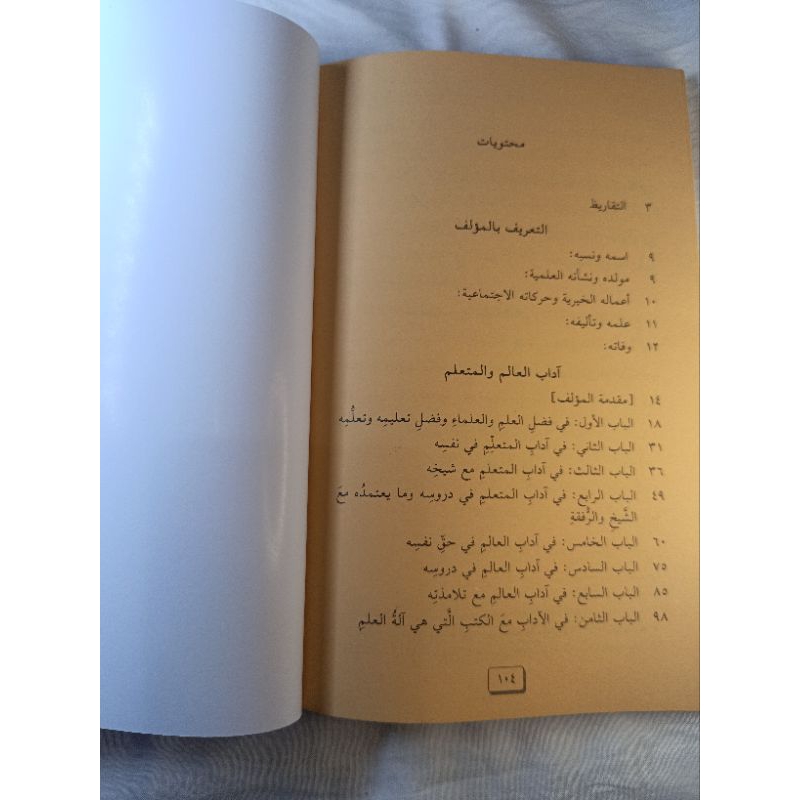 محتويات
٣ التقاريظ
التعريف بالمؤلف
٩ اسمه ونسبه:
٩ مولده ونشأته العلمية:
١٠ أعماله الخيرية وحركاته الاجتماعية:
١١ علمه وتأليفه:
١٢ وفاته:
آداب العالم والمتعلم
١٤ [مقدمة المؤلف]
١٨ الباب الأول: في فضلِ العلمِ والعلماءِ وفضلِ تعليمِه وتعلُّمِه
٣١ الباب الثاني: في آدابِ المتعلِّمِ في نفسِه
٣٦ الباب الثالث: في آدابِ المتعلمِ مع شيخِه
٤٩ الباب الرابع: في آدابِ المتعلمِ في دروسِه وما يعتمدُه معَ
الشَّيخِ والرُّفقةِ
٦٠ الباب الخامس: في آدابِ العالمِ في حقِّ نفسِه
٧٥ الباب السادس: في آدابِ العالمِ في دروسِه
٨٥ الباب السابع: في آدابِ العالمِ مع تلامذتِه
٩٨ الباب الثامن: في الآدابِ معَ الكتبِ الَّتي هي آلةُ العلمِ
١٠٤